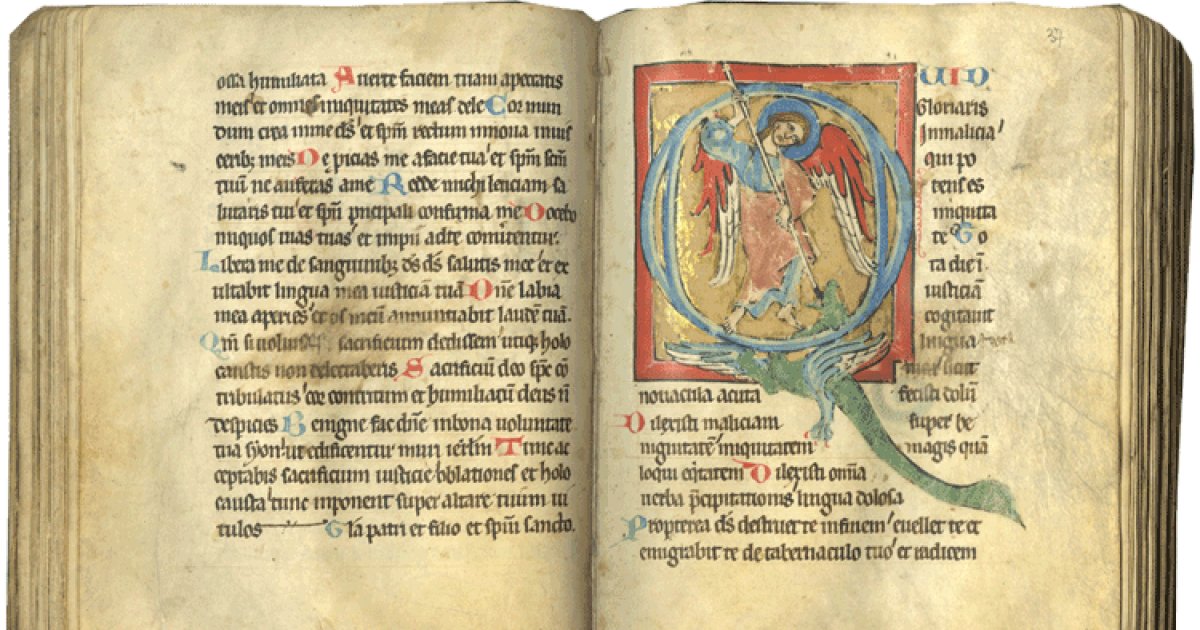 ossa humiliata Auerte faciem tuam apeccatis
meis et omnes iniquitates meas dele Cor mun
dum crea inme ds et spm rectum innoua inuis
cerib; meis Ne picias me afacie tua et spm scm
tuū ne auferas ame Redde michi leticiam sa
lutaris tui et spū pncipali confirma me Docebo
iniquos uias tuas et impii adte conuertentur.
Libera me de sanguinib; ds ds salutis mee et ex
ultabit lingua mea iusticiā tuā Dne labia
mea aperies et os meū annuntiabit laudē tuā.
Qm si uoluisses sacrificium dedissem utiq; holo
caustis non delectaberis Sacrificiū deo spc
tribulatus cor contritum et humiliatū deus ñ
despicies Benigne fac dñe inbona uoluntate
tua syon ut edificentur muri ierlm Tunc ac
ceptabis sacrificium iusticie oblationes et holo
causta tunc inponent super altare tuum ui
tulos Glā patri et filio et spui sancto.
37
UID
Gloriaris
Inmalicia
qui po
tens es
iniquita
te To
ta die ī
iusticiā
cogitauit
lingua
sicut
nouacula acuta fecisti dolū
Dilexisti maliciam super be
nignitatē iniquitatem magis quā
loqui eqtatem Dilexisti omīa
uerba pcipitationis lingua dolosa
Propterea ds destruet te infinem euellet te et
emigrabit te de tabernaculo tuo et radicem